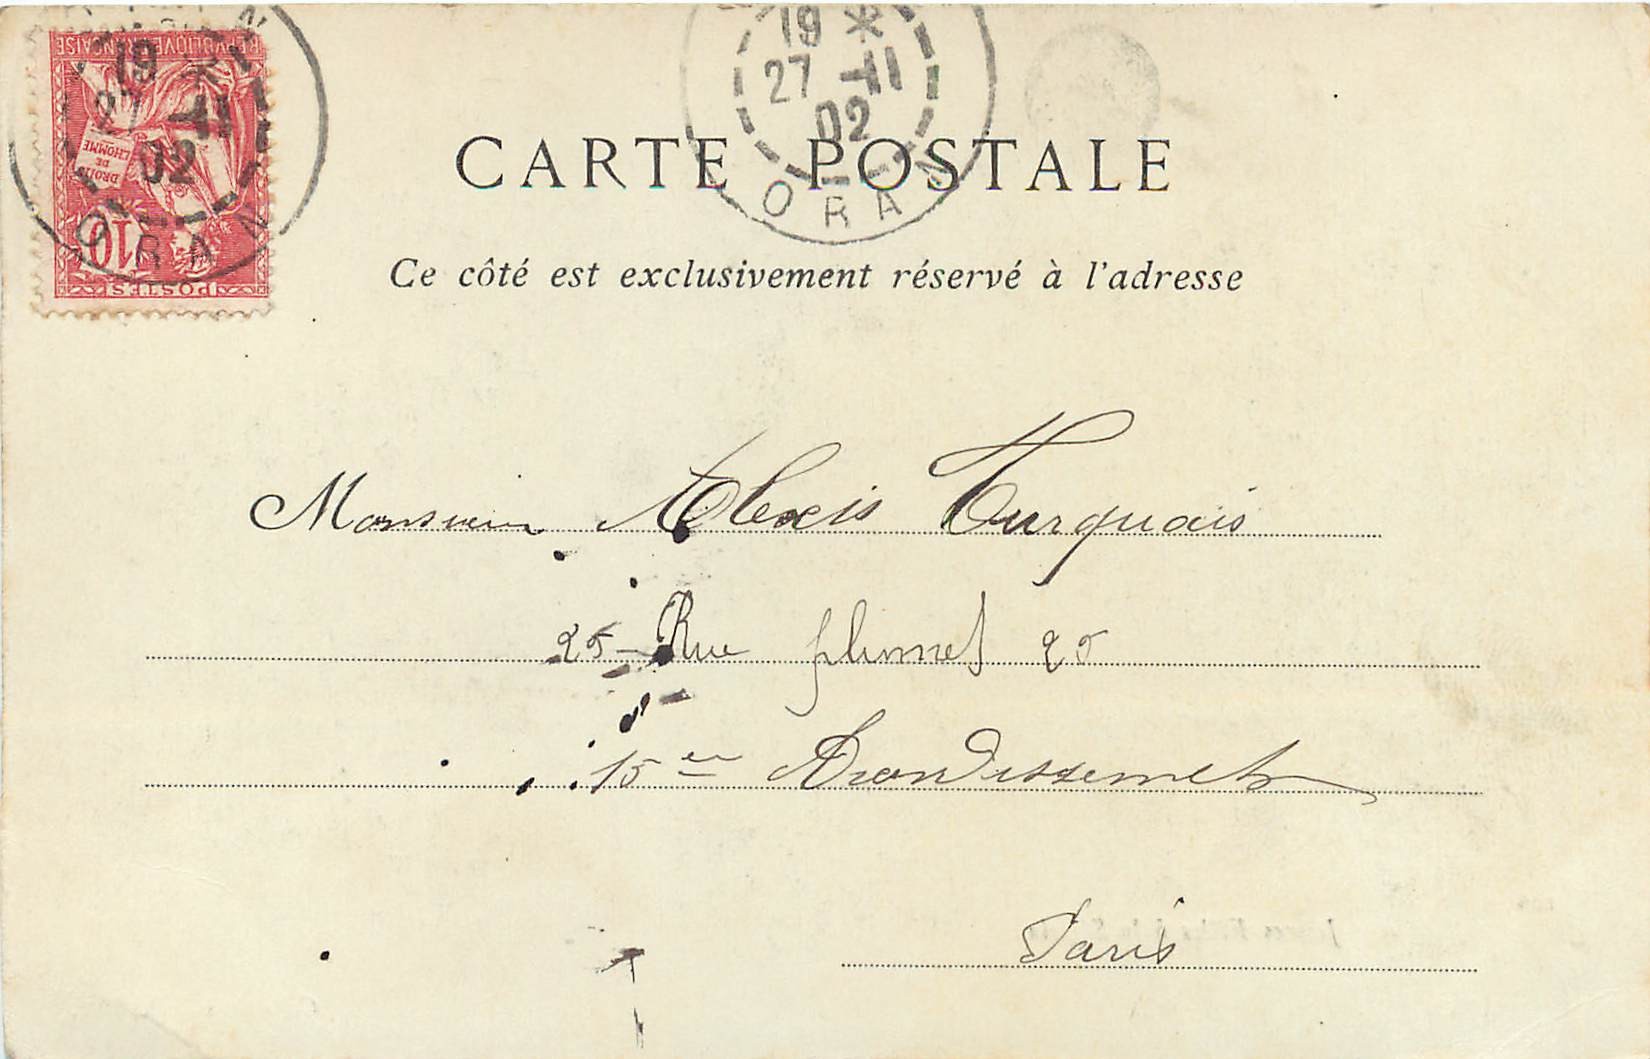 REPUBLIQUE FRANÇAISE
DROITS
DE
L'HOMME
10
POSTES
19 *
27 -11
02
ORAN
19 *
27 -11
02
ORAN
CARTE POSTALE
Ce côté est exclusivement réservé à l'adresse
Monsieur Alexis Turquais
25 - Rue plumet 25
15 er Arondissemet
Paris